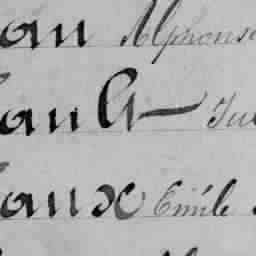 an Alphonse
ault Ju
aux Emile